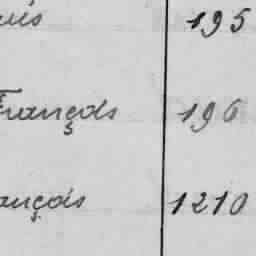 195
François 196
ançois 1210